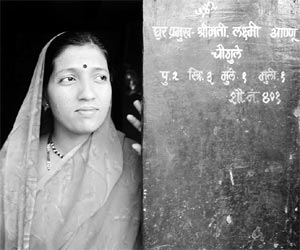 घर प्रमुख- श्रीमती. लक्ष्मी आण्णू
चौगुले
पु. २ स्त्रि. ३ मुल. १ मुली. १
शौ. नं. ४०१